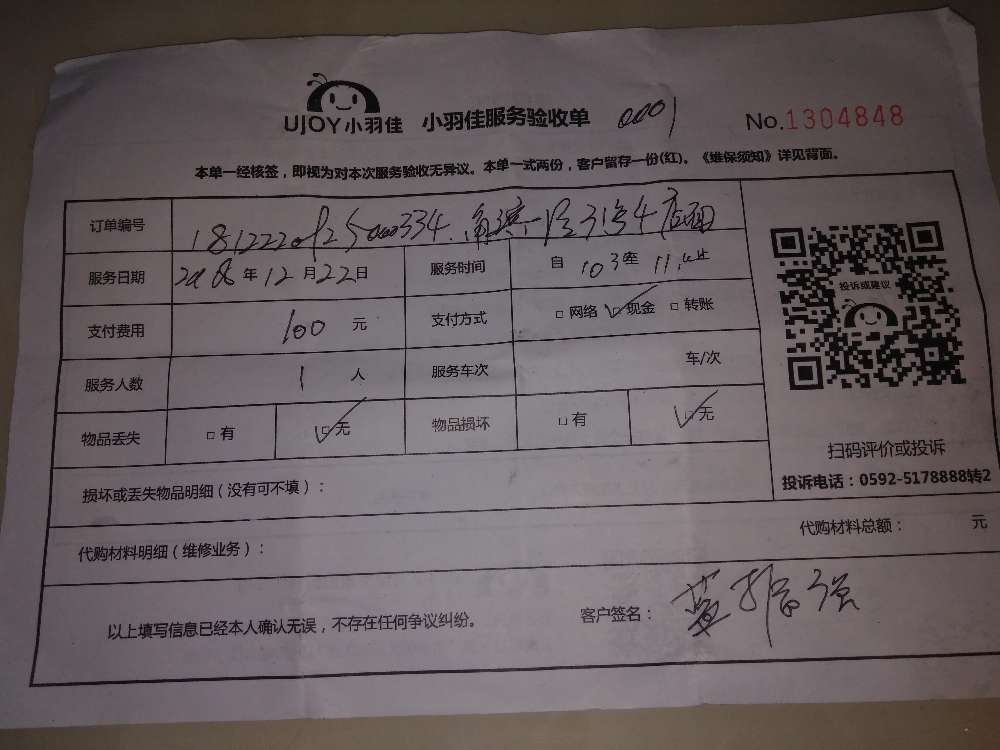 UJOY小羽佳 小羽佳服务验收单 0001 No.1304848
本单一经核签，即视为对本次服务验收无异议。本单一式两份，客户留存一份(红)。《维保须知》详见背面。
订单编号 店面
服务日期 2018年12月22日 服务时间 自 至 止
投诉或建议
支付费用 100 元 支付方式 □网络 ☑现金 □转账
服务人数 1 人 服务车次 车/次
物品丢失 □有 ☑无 物品损坏 □有 ☑无
扫码评价或投诉
投诉电话：0592-5178888转2
损坏或丢失物品明细（没有可不填）：
代购材料明细（维修业务）： 代购材料总额： 元
以上填写信息已经本人确认无误，不存在任何争议纠纷。 客户签名：